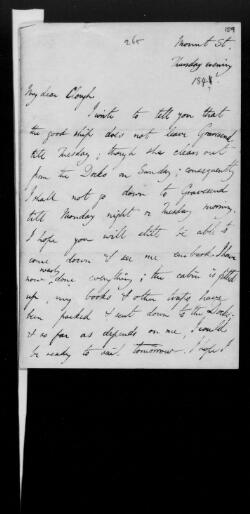 159
265
Mount St.
Thursday evening
184
My dear Clough
I write to tell you that
the good ship does not leave Gravesend
till Tuesday; though she clears out
from the Docks on Sunday; consequently
I shall not go down to Gravesend
till Monday night or Tuesday morning.
I hope you will still be able to
come down & see me embark. I have
now nearly done everything; the cabin is fitted
up, my books & other traps have
been packed & sent down to the Docks,
& as far as depends on me, I could
be ready to sail tomorrow. I hope I